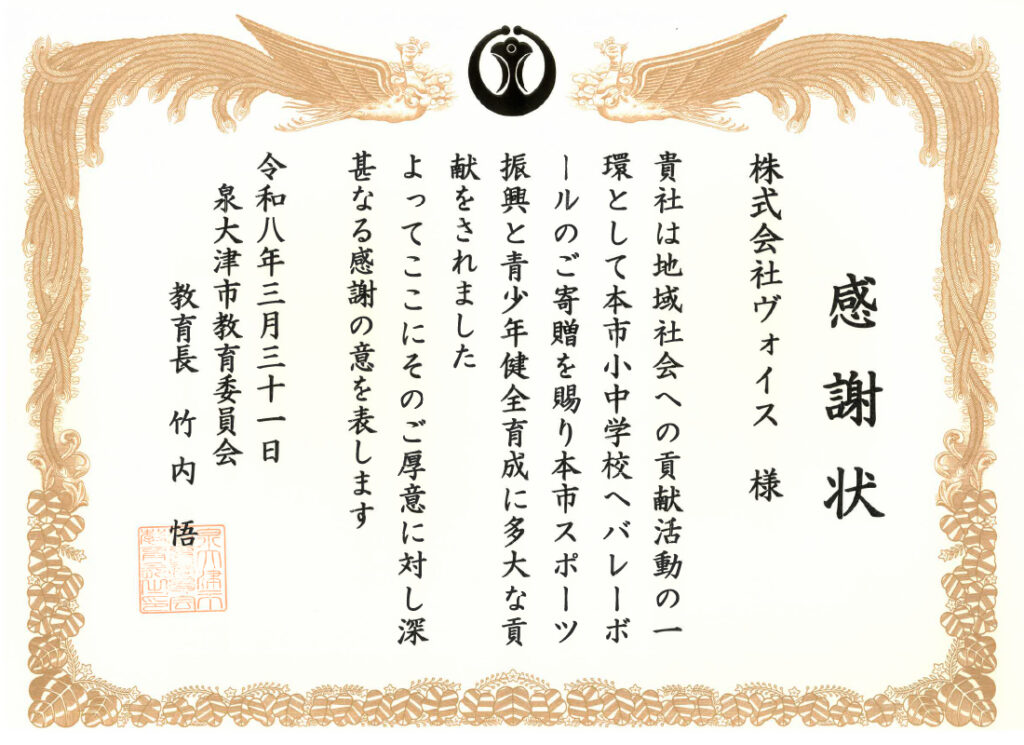 感謝状
株式会社ヴォイス 様
貴社は地域社会への貢献活動の一
環として本市小中学校へバレーボ
ールのご寄贈を賜り本市スポーツ
振興と青少年健全育成に多大な貢
献をされました
よってここにそのご厚意に対し深
甚なる感謝の意を表します
令和八年三月三十一日
泉大津市教育委員会
教育長 竹内 悟